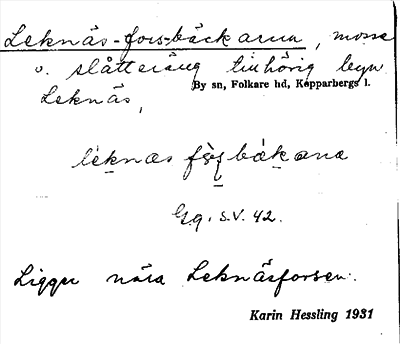 Leknäs-forsbäckarna, mosse
o. slåtteräng tillhörig byn
By sn, Folkare hd, Kopparbergs l.
Leknäs,
lèknæs fɷ̀ʂbækana
Gg. S.V. 42.
Ligger nära Leknäsforsen.
Karin Hessling 1931